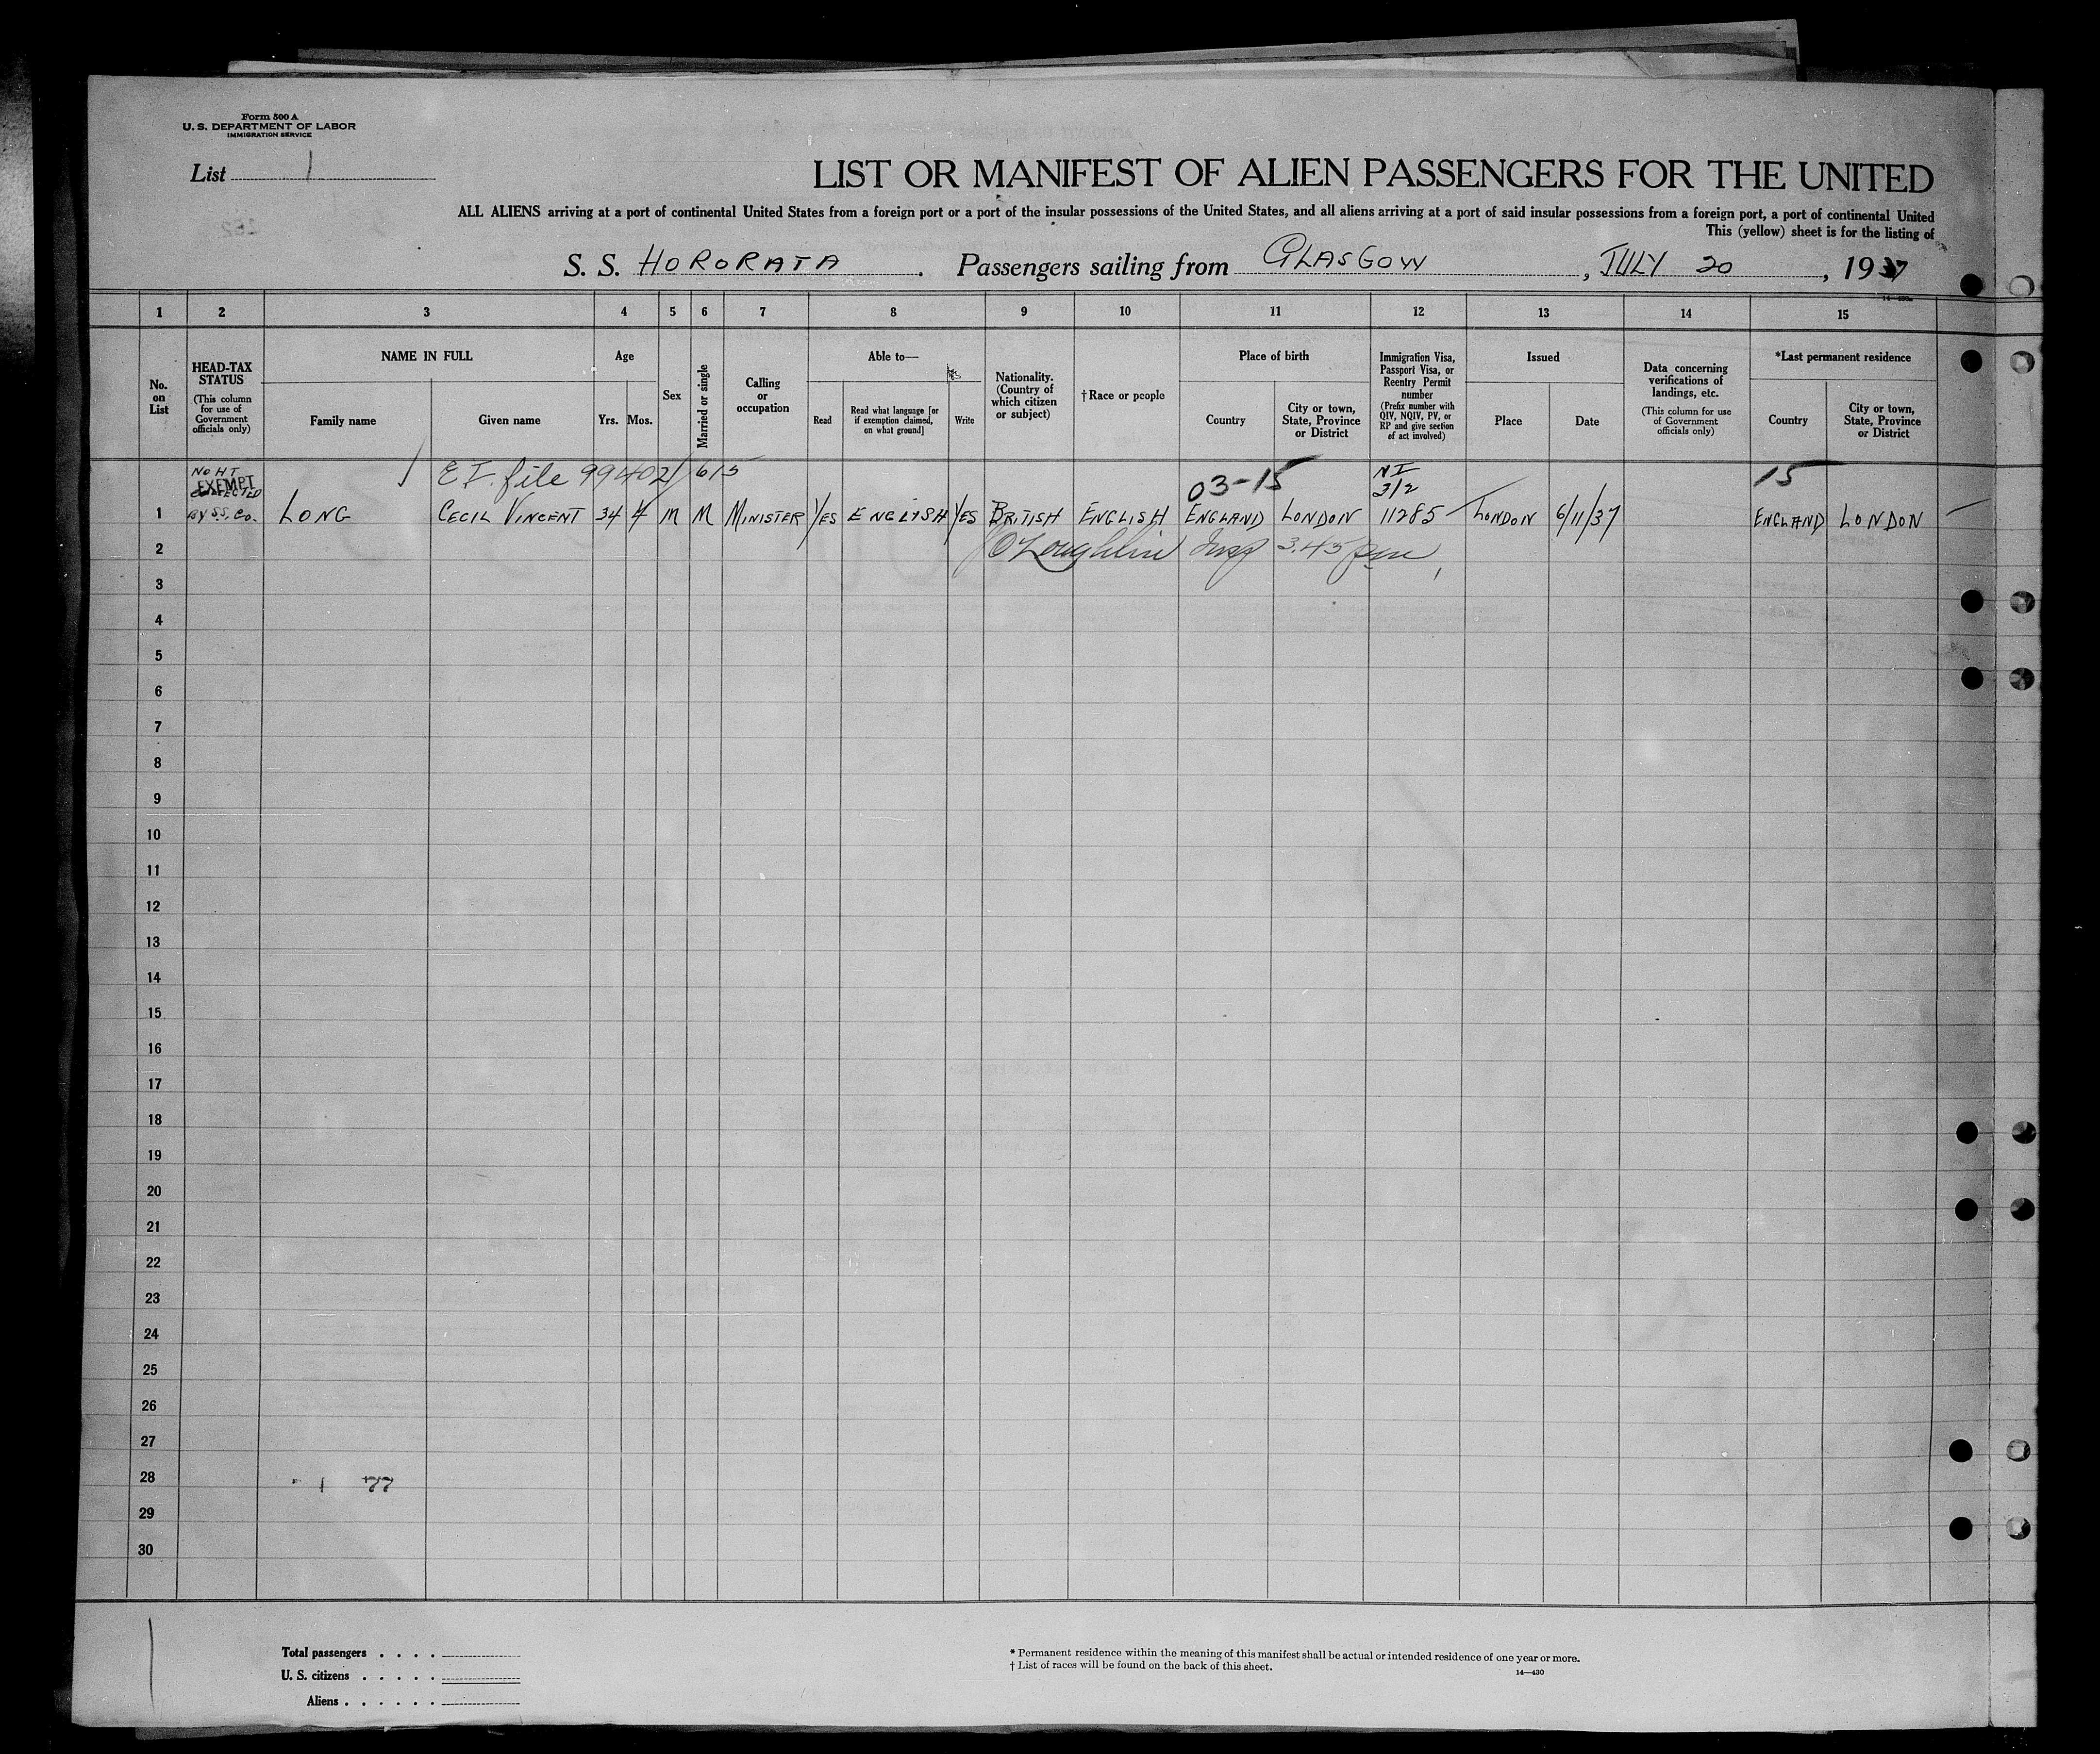 Form 500 A
U. S. DEPARTMENT OF LABOR
IMMIGRATION SERVICE
List 1
LIST OR MANIFEST OF ALIEN PASSENGERS FOR THE UNITED
ALL ALIENS arriving at a port of continental United States from a foreign port or a port of the insular possessions of the United States, and all aliens arriving at a port of said insular possessions from a foreign port, a port of continental United
This (yellow) sheet is for the listing of
S. S. HORORATA. Passengers sailing from GLASGOW, JULY 20, 1937
1 2 3 4 5 6 7 8 9 10 11 12 13 14 15
No. on List
HEAD-TAX STATUS
(This column for use of Government officials only)
NAME IN FULL
Family name
Given name
Age
Yrs. Mos.
Sex
Married or single
Calling or occupation
Able to—
Read
Read what language [or if exemption claimed, on what ground]
Write
Nationality. (Country of which citizen or subject)
†Race or people
Place of birth
Country
City or town, State, Province or District
Immigration Visa, Passport Visa, or Reentry Permit number
(Prefix number with QIV, NQIV, PV, or RP and give section of act involved)
Issued
Place
Date
Data concerning verifications of landings, etc.
(This column for use of Government officials only)
*Last permanent residence
Country
City or town, State, Province or District
NO HT EXEMPT COLLECTED BY S.S. CO.
E I file 99402/615
03-15
NI
3/2
15
1 LONG CECIL VINCENT 34 4 M M MINISTER YES ENGLISH YES BRITISH ENGLISH ENGLAND LONDON 11285 LONDON 6/11/37 ENGLAND LONDON
2 O'Loughlin Insp 3.45 pm
3
4
5
6
7
8
9
10
11
12
13
14
15
16
17
18
19
20
21
22
23
24
25
26
27
28
29
30
Total passengers
U. S. citizens
Aliens
* Permanent residence within the meaning of this manifest shall be actual or intended residence of one year or more.
† List of races will be found on the back of this sheet.
14—430